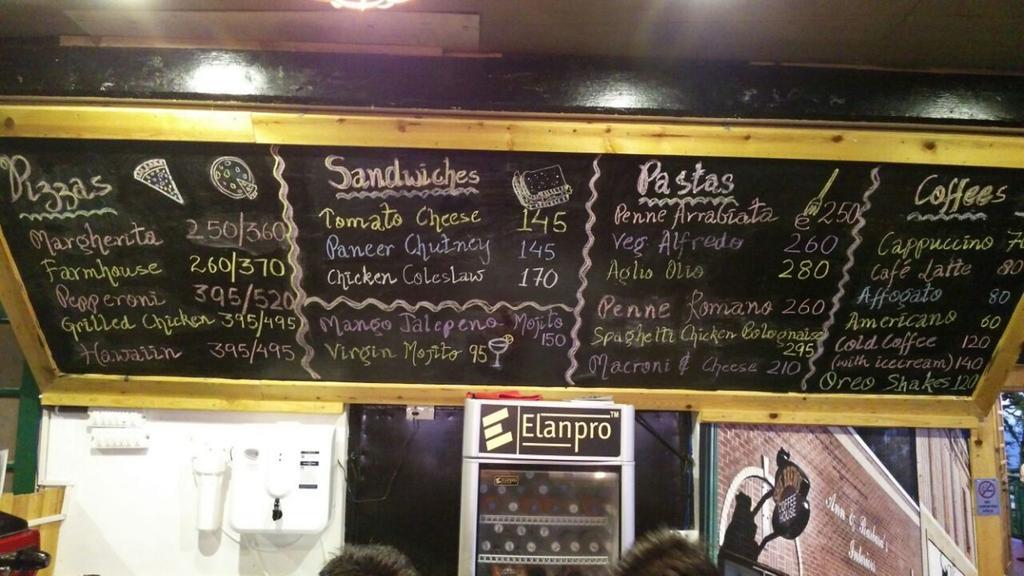 Pizzas
Margherita 250/360
Farmhouse 260/370
Pepperoni 395/520
Grilled Chicken 395/495
Hawaiin 395/495
Sandwiches
Tomato Cheese 145
Paneer Chutney 145
Chicken Coleslaw 170
Mango Jalepeno Mojito 150
Virgin Mojito 95
Pastas
Penne Arrabiata 250
Veg. Alfredo 260
Aglio Olio 280
Penne Romano 260
Spaghetti Chicken Bolognaise 295
Macroni & Cheese 210
Coffees
Cappuccino
Café Latte 80
Affogato 80
Americano 60
Cold Coffee 120
(with icecream) 140
Oreo Shakes 120
Elanpro™